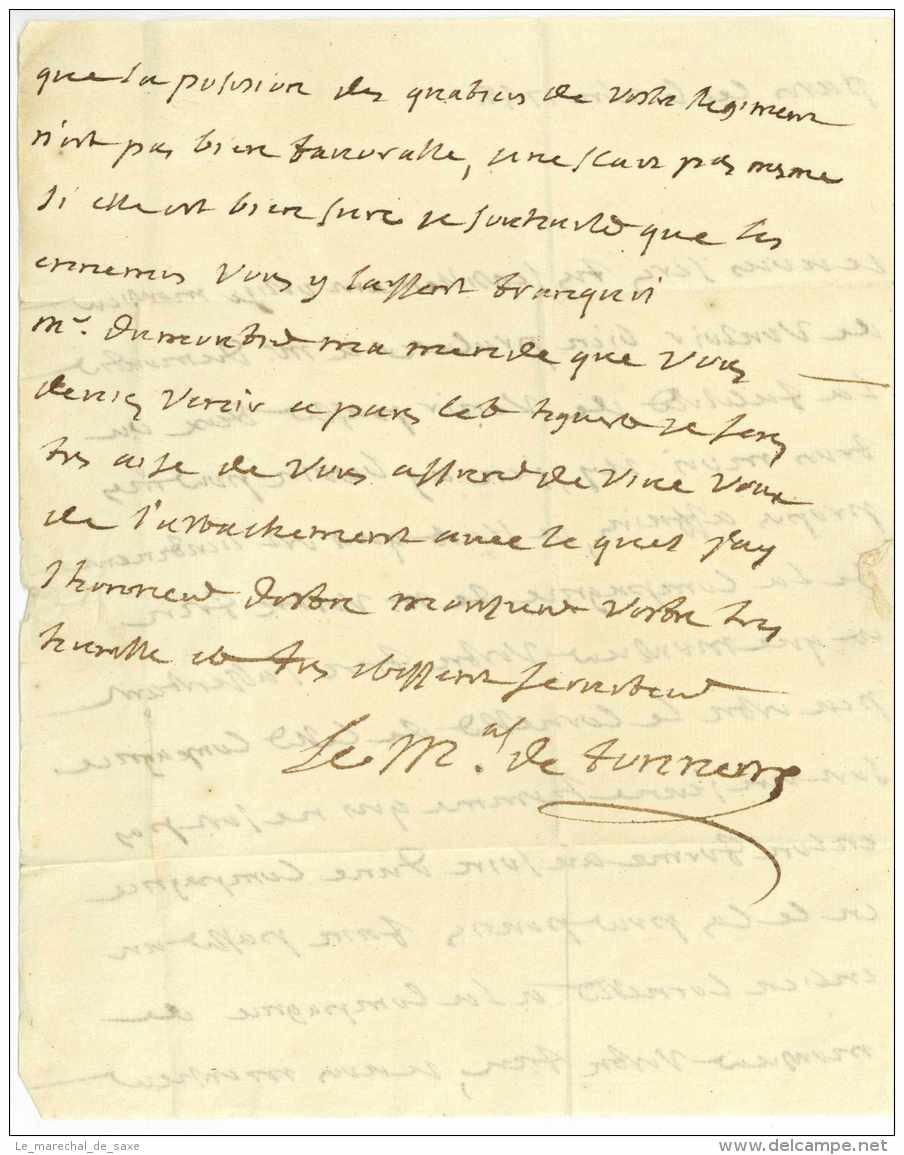 que la posision des quatiers de vostre Regiment
n'est pas bien favoralle, je ne scais pas mesme
si elle est bien sure je souhaitte que les
ennemis vous y laissent tranquil
mr. dumoutié me mende que vous
deviez venir a paris cest hyvert je serez
tres aise de vous assurer de vive voix
de l'attachement avec le quel j'ay
l honneur d'estre monsieur vostre tres
humble et tres obeissent serviteur
Le M.al de tonnerre
Le_marechal_de_saxe
www.delcampe.net